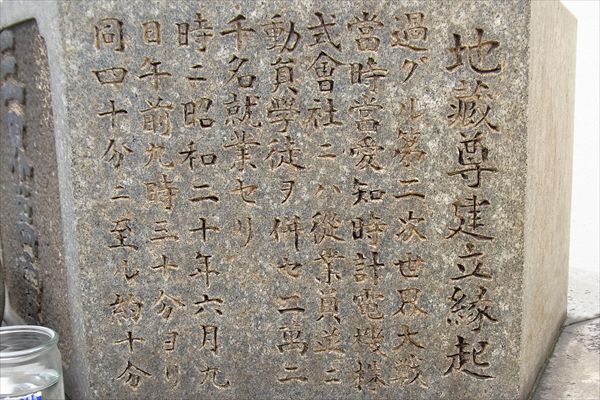 地藏尊建立緣起
過グル第二次世界大戦
當時當愛知時計電機株
式會社ニハ從業員並ニ
動員学徒ヲ併セ二萬二
千名就業セリ
時ニ昭和二十年六月九
日午前九時三十分ヨリ
同四十分ニ至ル約十分